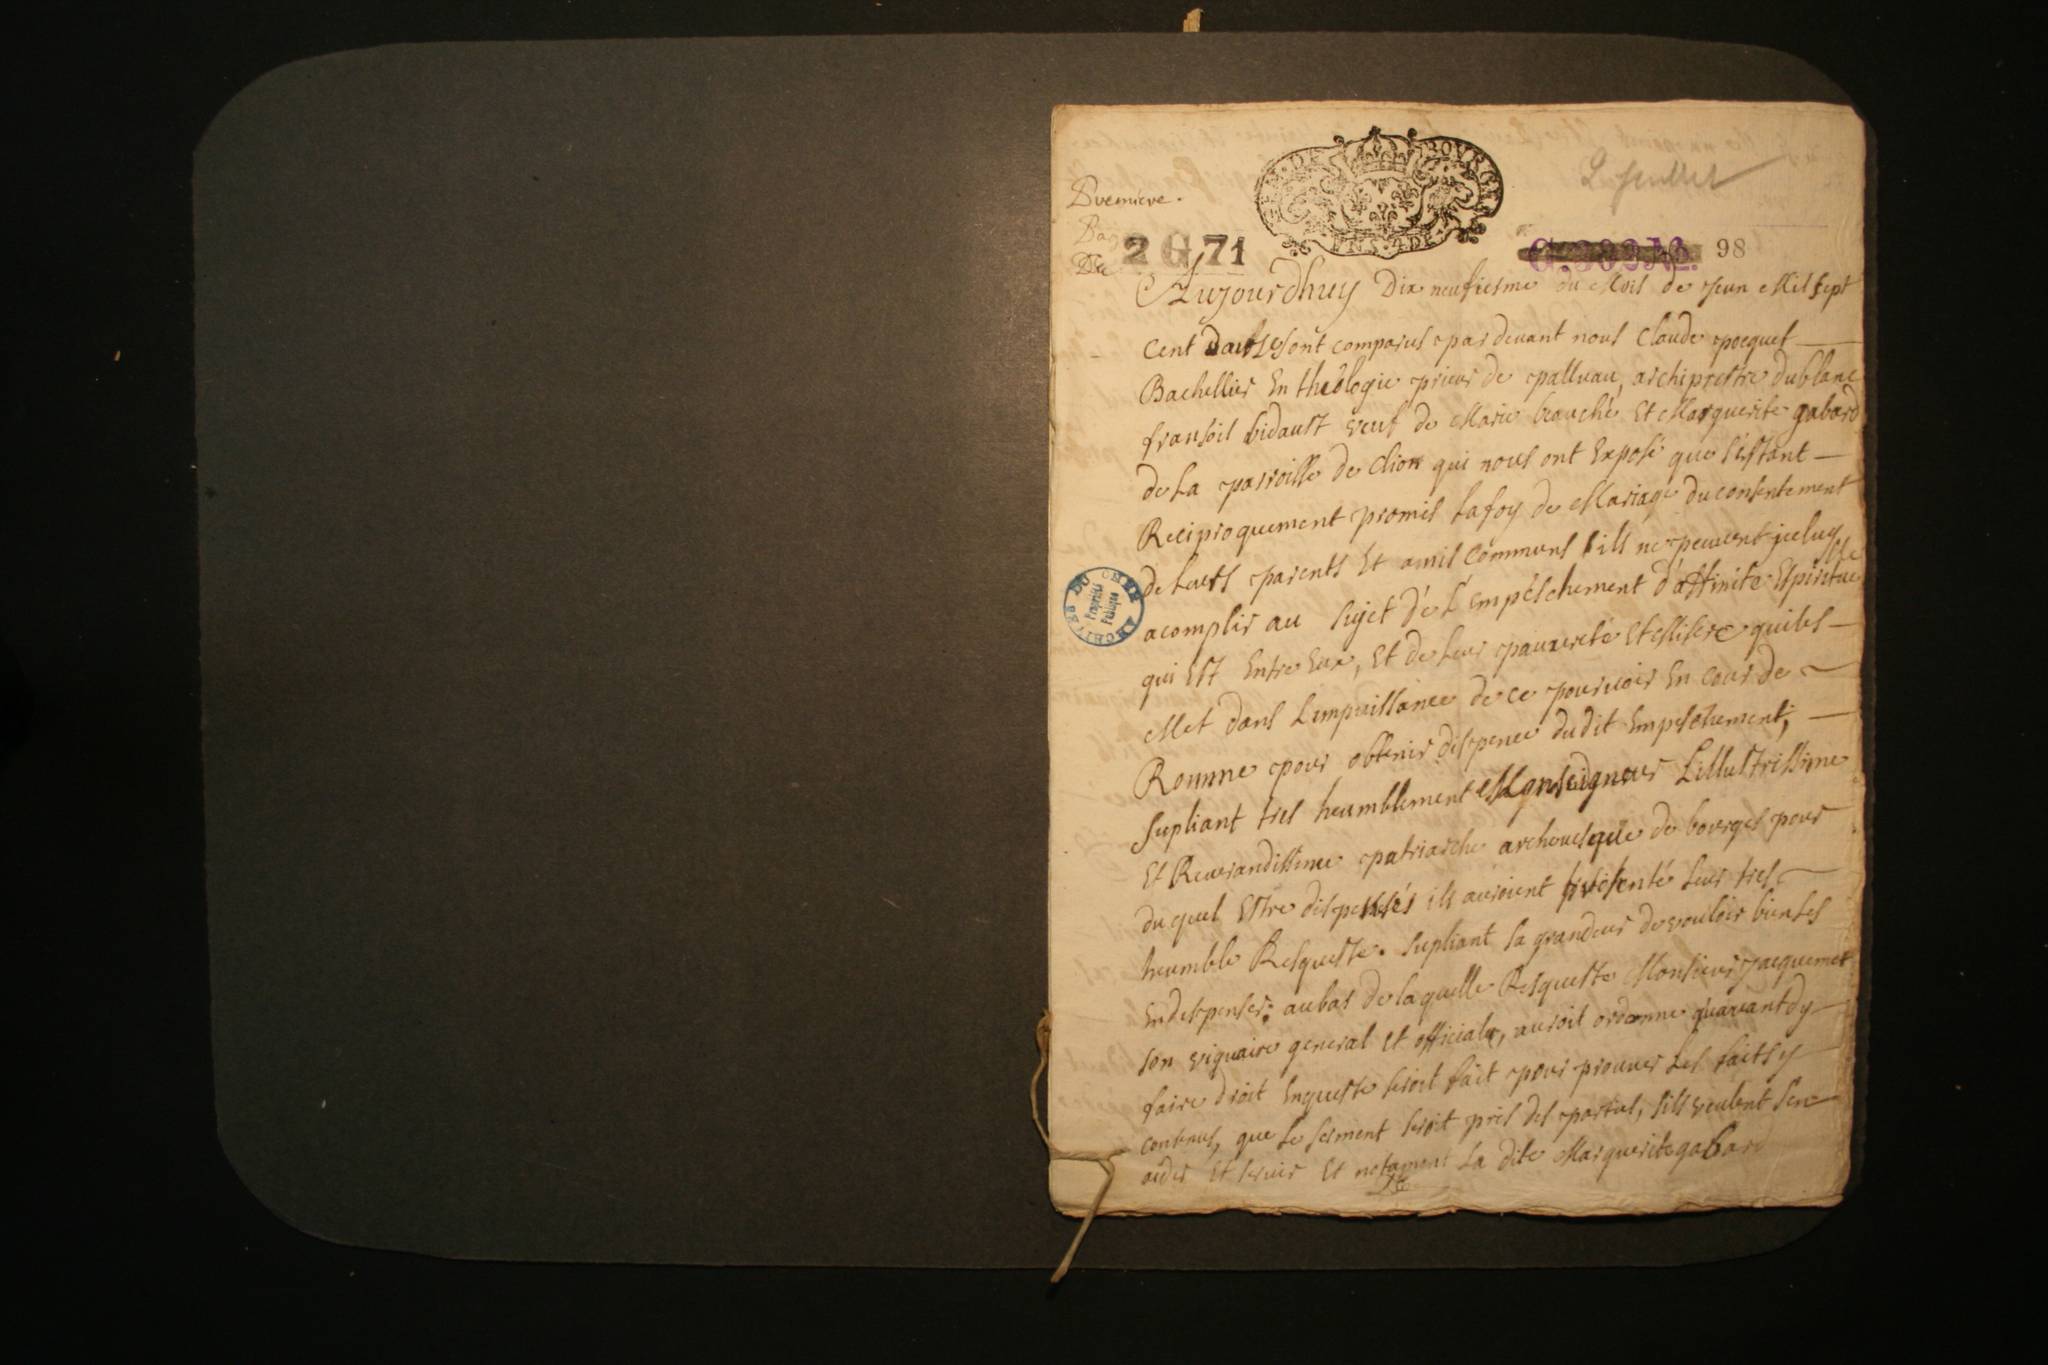 GEN. DE BOURGES
EN S. 4 DE.
2 feuillet
Premiere.
Pag
2 G 71
98
Aujourdhuy Dix neufiesme du Mois de Jeun Mil sept
cent douse sont comparus par devant nous Claude pocquet
Bachellier En theologie prieur de palluau, archiprestre dublanc
fransois bidault veuf de Marie beauché Et Marguerite gabard
de La parroisse de Clion qui nous ont Exposé que s'estant
Reciproquement promis La foy de Mariage du consentement
de Leurs parents Et amis communs sils ne peuvent jceluy
acomplir au sujet de L'empeschement d'affinité Espirituelle
qui Est Entre Eux, Et de Leur pauvreté Et Misere quiles
Met dans Limpuissance de ce pourvoir En cour de
Romme pour obtenir dispence dudit Empeschement,
supliant tres heumblement Monseigneur Lillustrissime
Et Reverandissime patriarche archevesque de bourges pour
du quel Estre dispensés ils auroient presenté Leur tres
heumble Resqueste. supliant sa grandeur de vouloir bien Les
En dispenser; au bas de laquelle Resqueste Monsieur Jacquemet
son viguaire general Et official, auroit ordonne quavant dy
faire droit Enqueste seroit fait pour prouver Les faits y
contenus, que Le serment seroit pris des parties, sils veulent sen
aider Et servir Et notament La dite Marguerite gabard
ARCHIVES DU CHER
Propriété
Publique